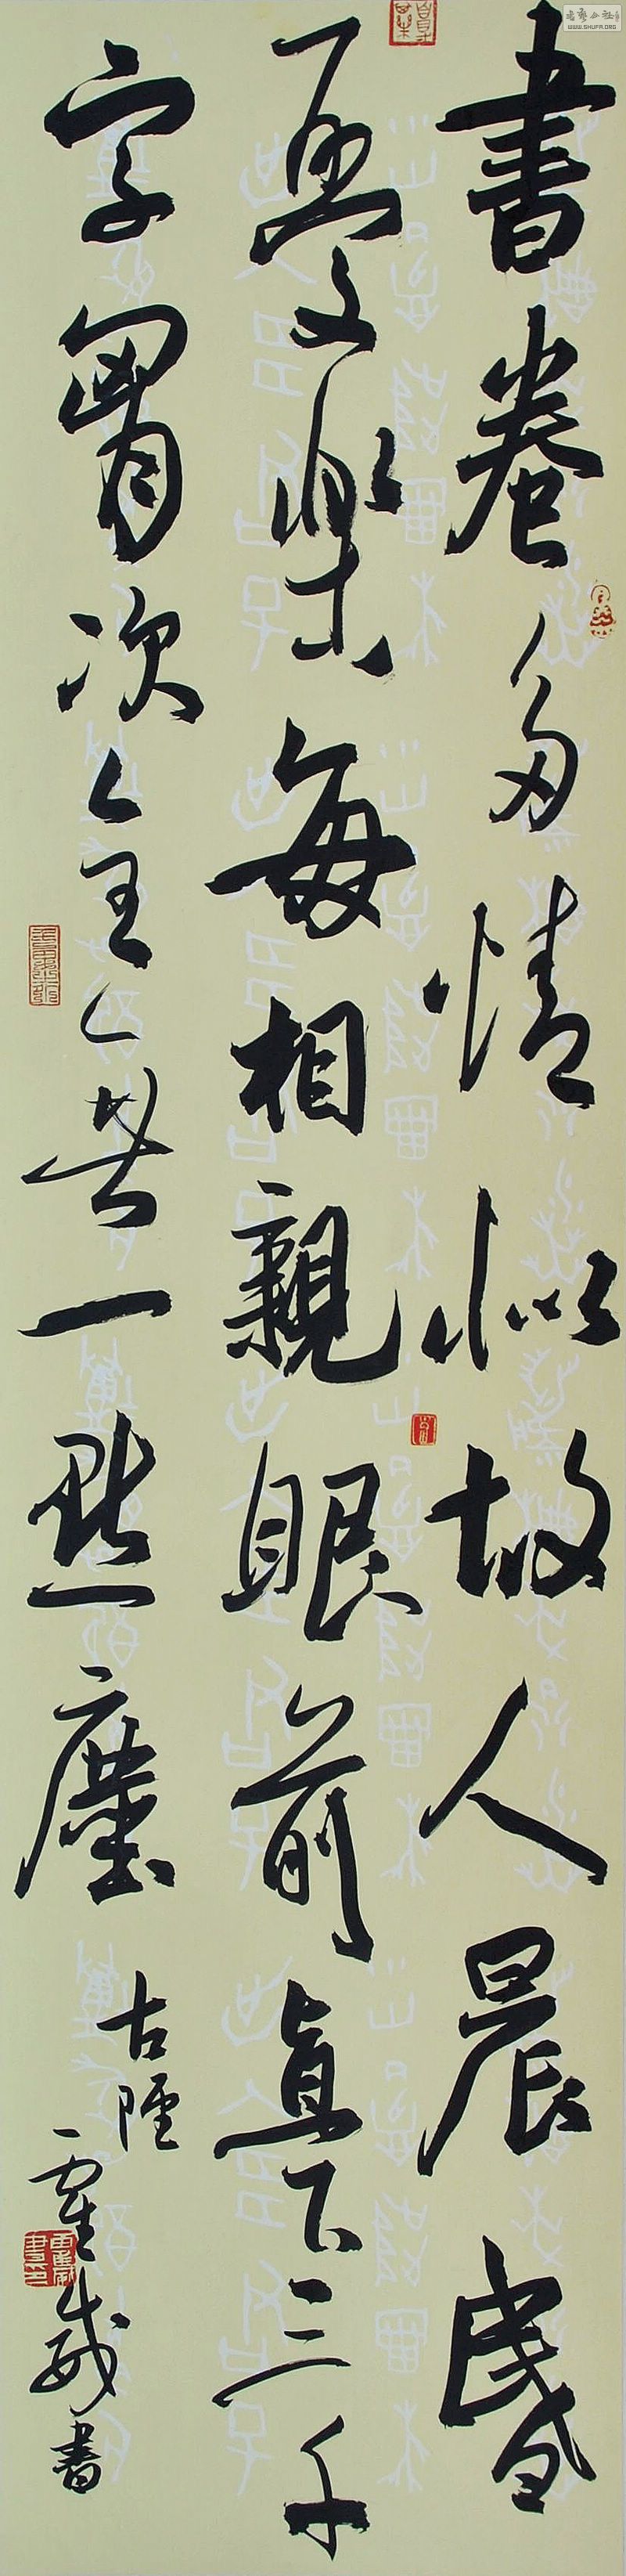 書卷多情似故人晨昏
憂樂每相親眼前直下三千
字胷次全無一點塵
古陘
霍威書
書藝公社
WWW.SHUFA.ORG